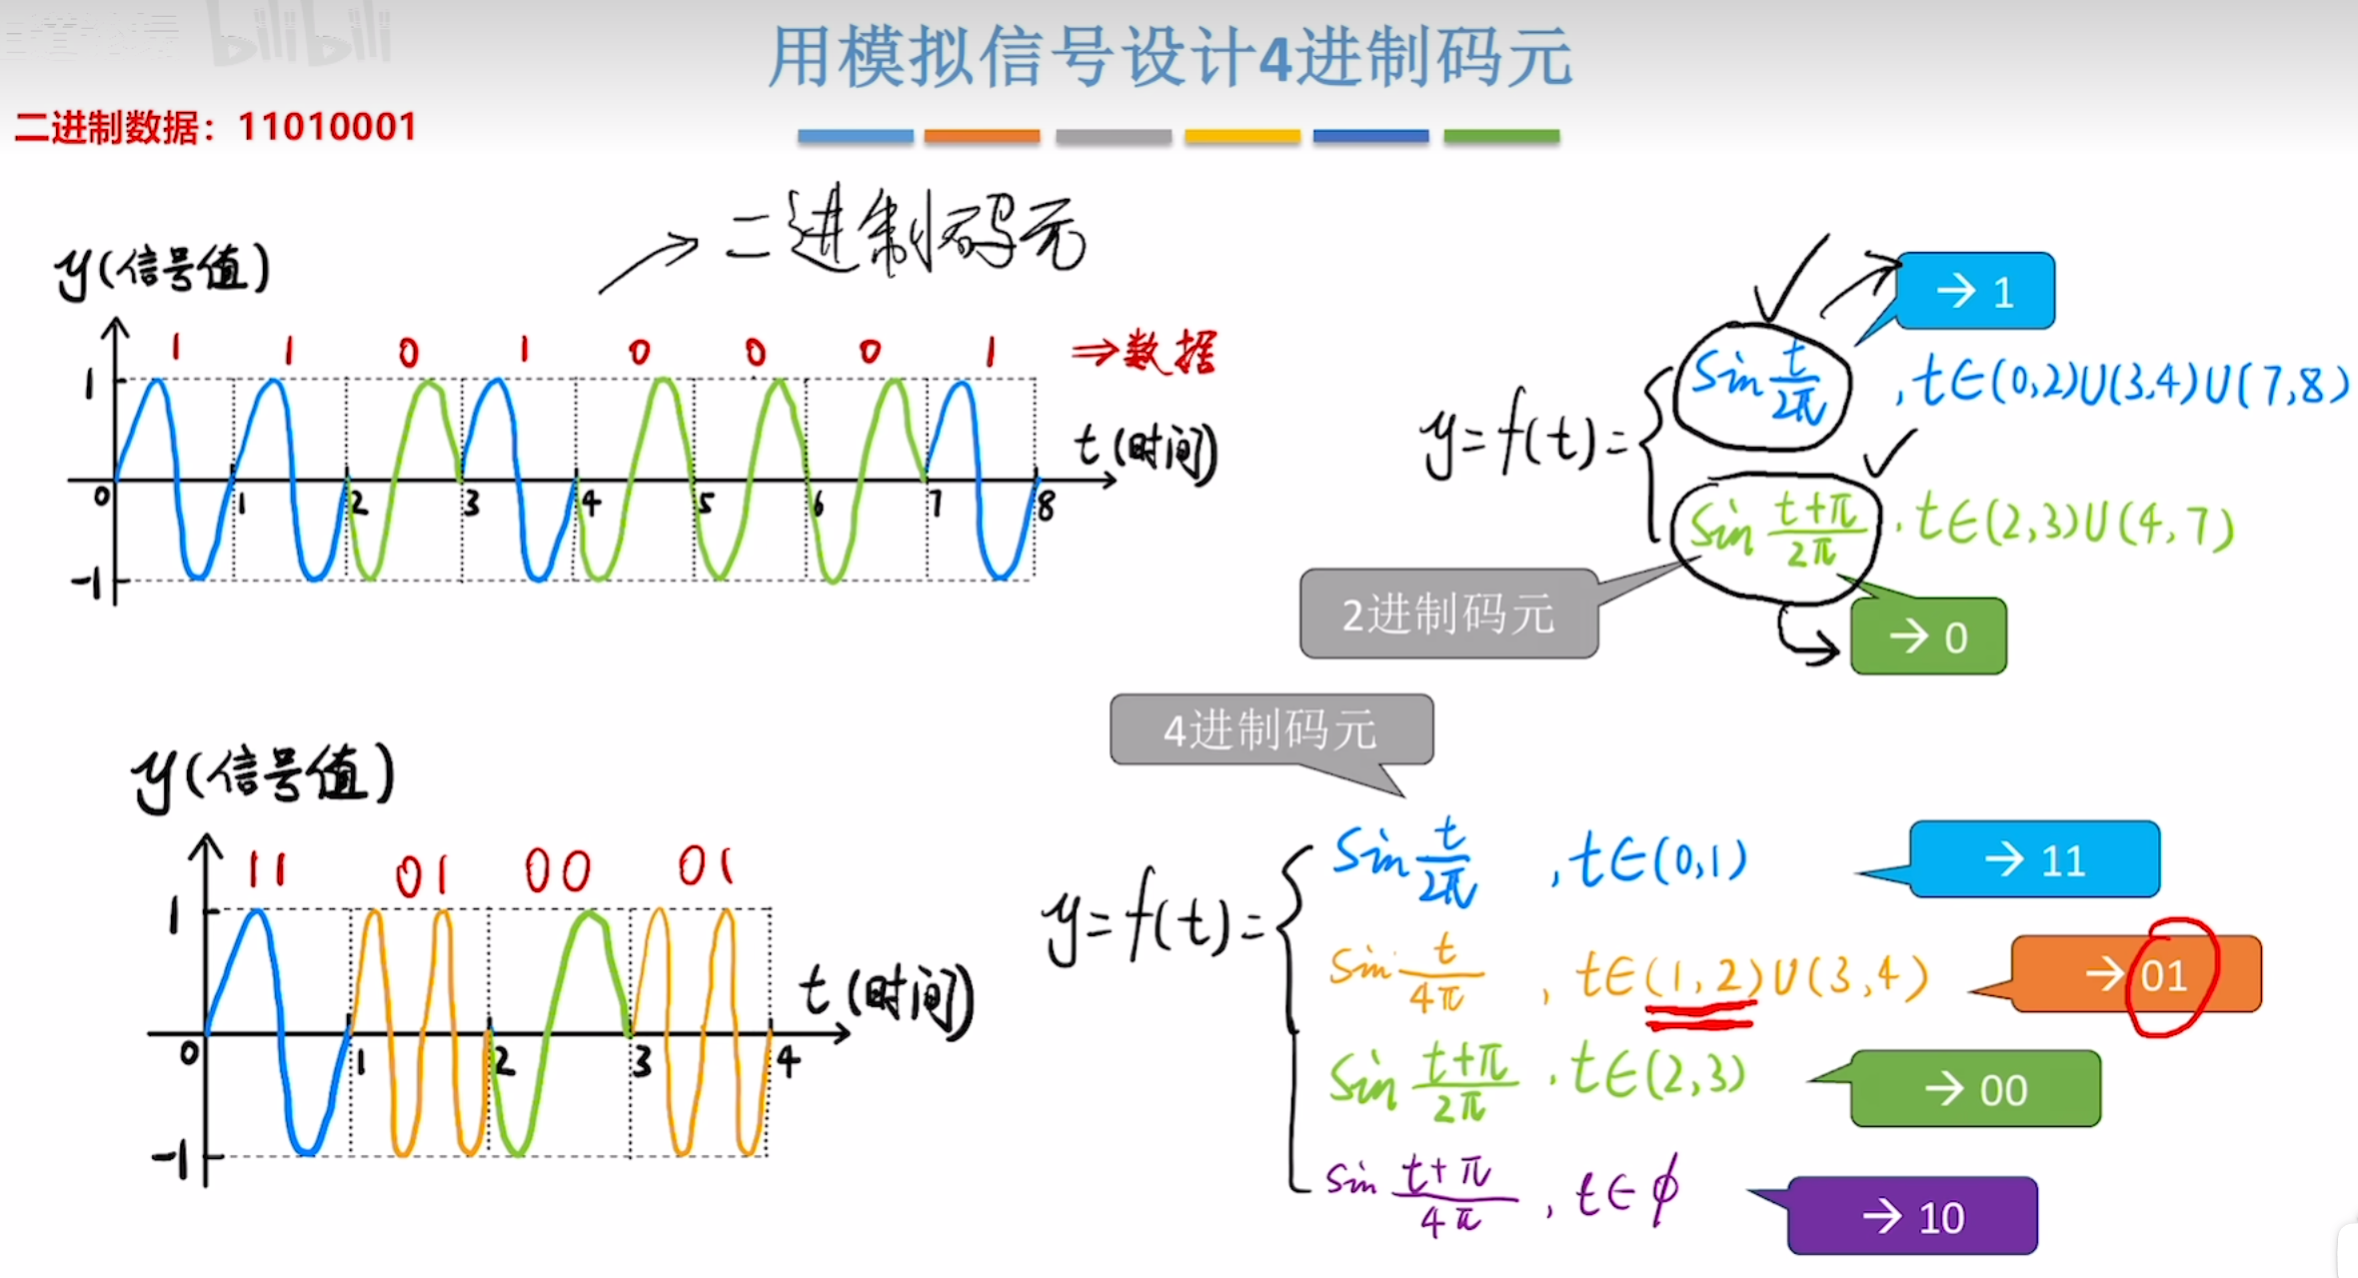 bilibili
用模拟信号设计4进制码元
二进制数据：11010001
→ 二进制码元
y(信号值)
1 1 0 1 0 0 0 1 ⇒数据
1
t(时间)
0 1 2 3 4 5 6 7 8
-1
→ 1
y=f(t)=
sin t/2π , t∈(0,2)∪(3,4)∪(7,8)
sin t+π/2π , t∈(2,3)∪(4,7)
2进制码元
→ 0
4进制码元
y(信号值)
11 01 00 01
1
t(时间)
0 1 2 3 4
-1
y=f(t)=
sin t/2π , t∈(0,1) → 11
sin t/4π , t∈(1,2)∪(3,4) → 01
sin t+π/2π , t∈(2,3) → 00
sin t+π/4π , t∈ϕ → 10